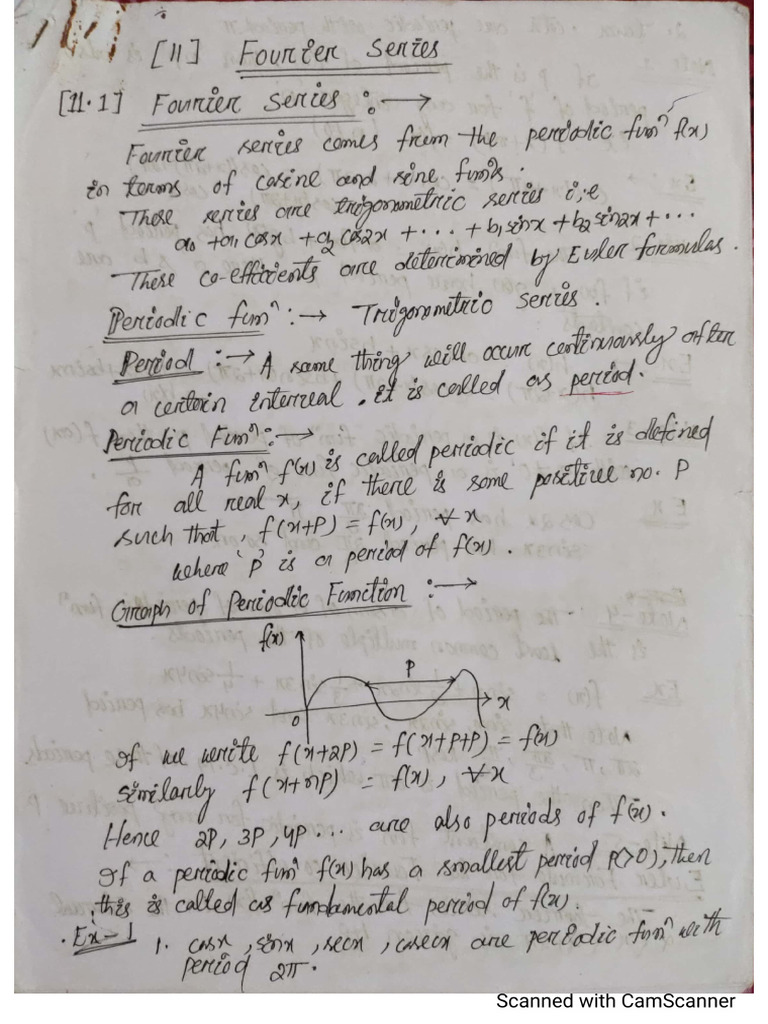 [11] Fourier Series
[11.1] Fourier Series :→
Fourier series comes from the periodic funⁿ f(x)
in terms of cosine and sine funⁿs.
These series are trigonometric series i;e
a₀ + a₁ cosx + a₂ cos2x + ··· + b₁ sinx + b₂ sin2x + ···
These co-efficients are determined by Euler formulas.
Periodic funⁿ :→ Trigonometric series.
Period :→ A same thing will occur continuously after
a certain interval. it is called as period.
Periodic Funⁿ :→
A funⁿ f(x) is called periodic if it is defined
for all real x, if there is some positive no. P
such that, f(x+P) = f(x), ∀ x
where 'P' is a period of f(x).
Graph of Periodic Function :→
f(x)
P
x
0
If we write f(x+2P) = f(x+P+P) = f(x)
similarly f(x+nP) = f(x), ∀ x
Hence 2P, 3P, 4P ... are also periods of f(x).
If a periodic funⁿ f(x) has a smallest period P(>0), then
this is called as fundamental period of f(x).
Ex-1 1. cosx, sinx, secx, cosecx are periodic funⁿ with
period 2π.
Scanned with CamScanner